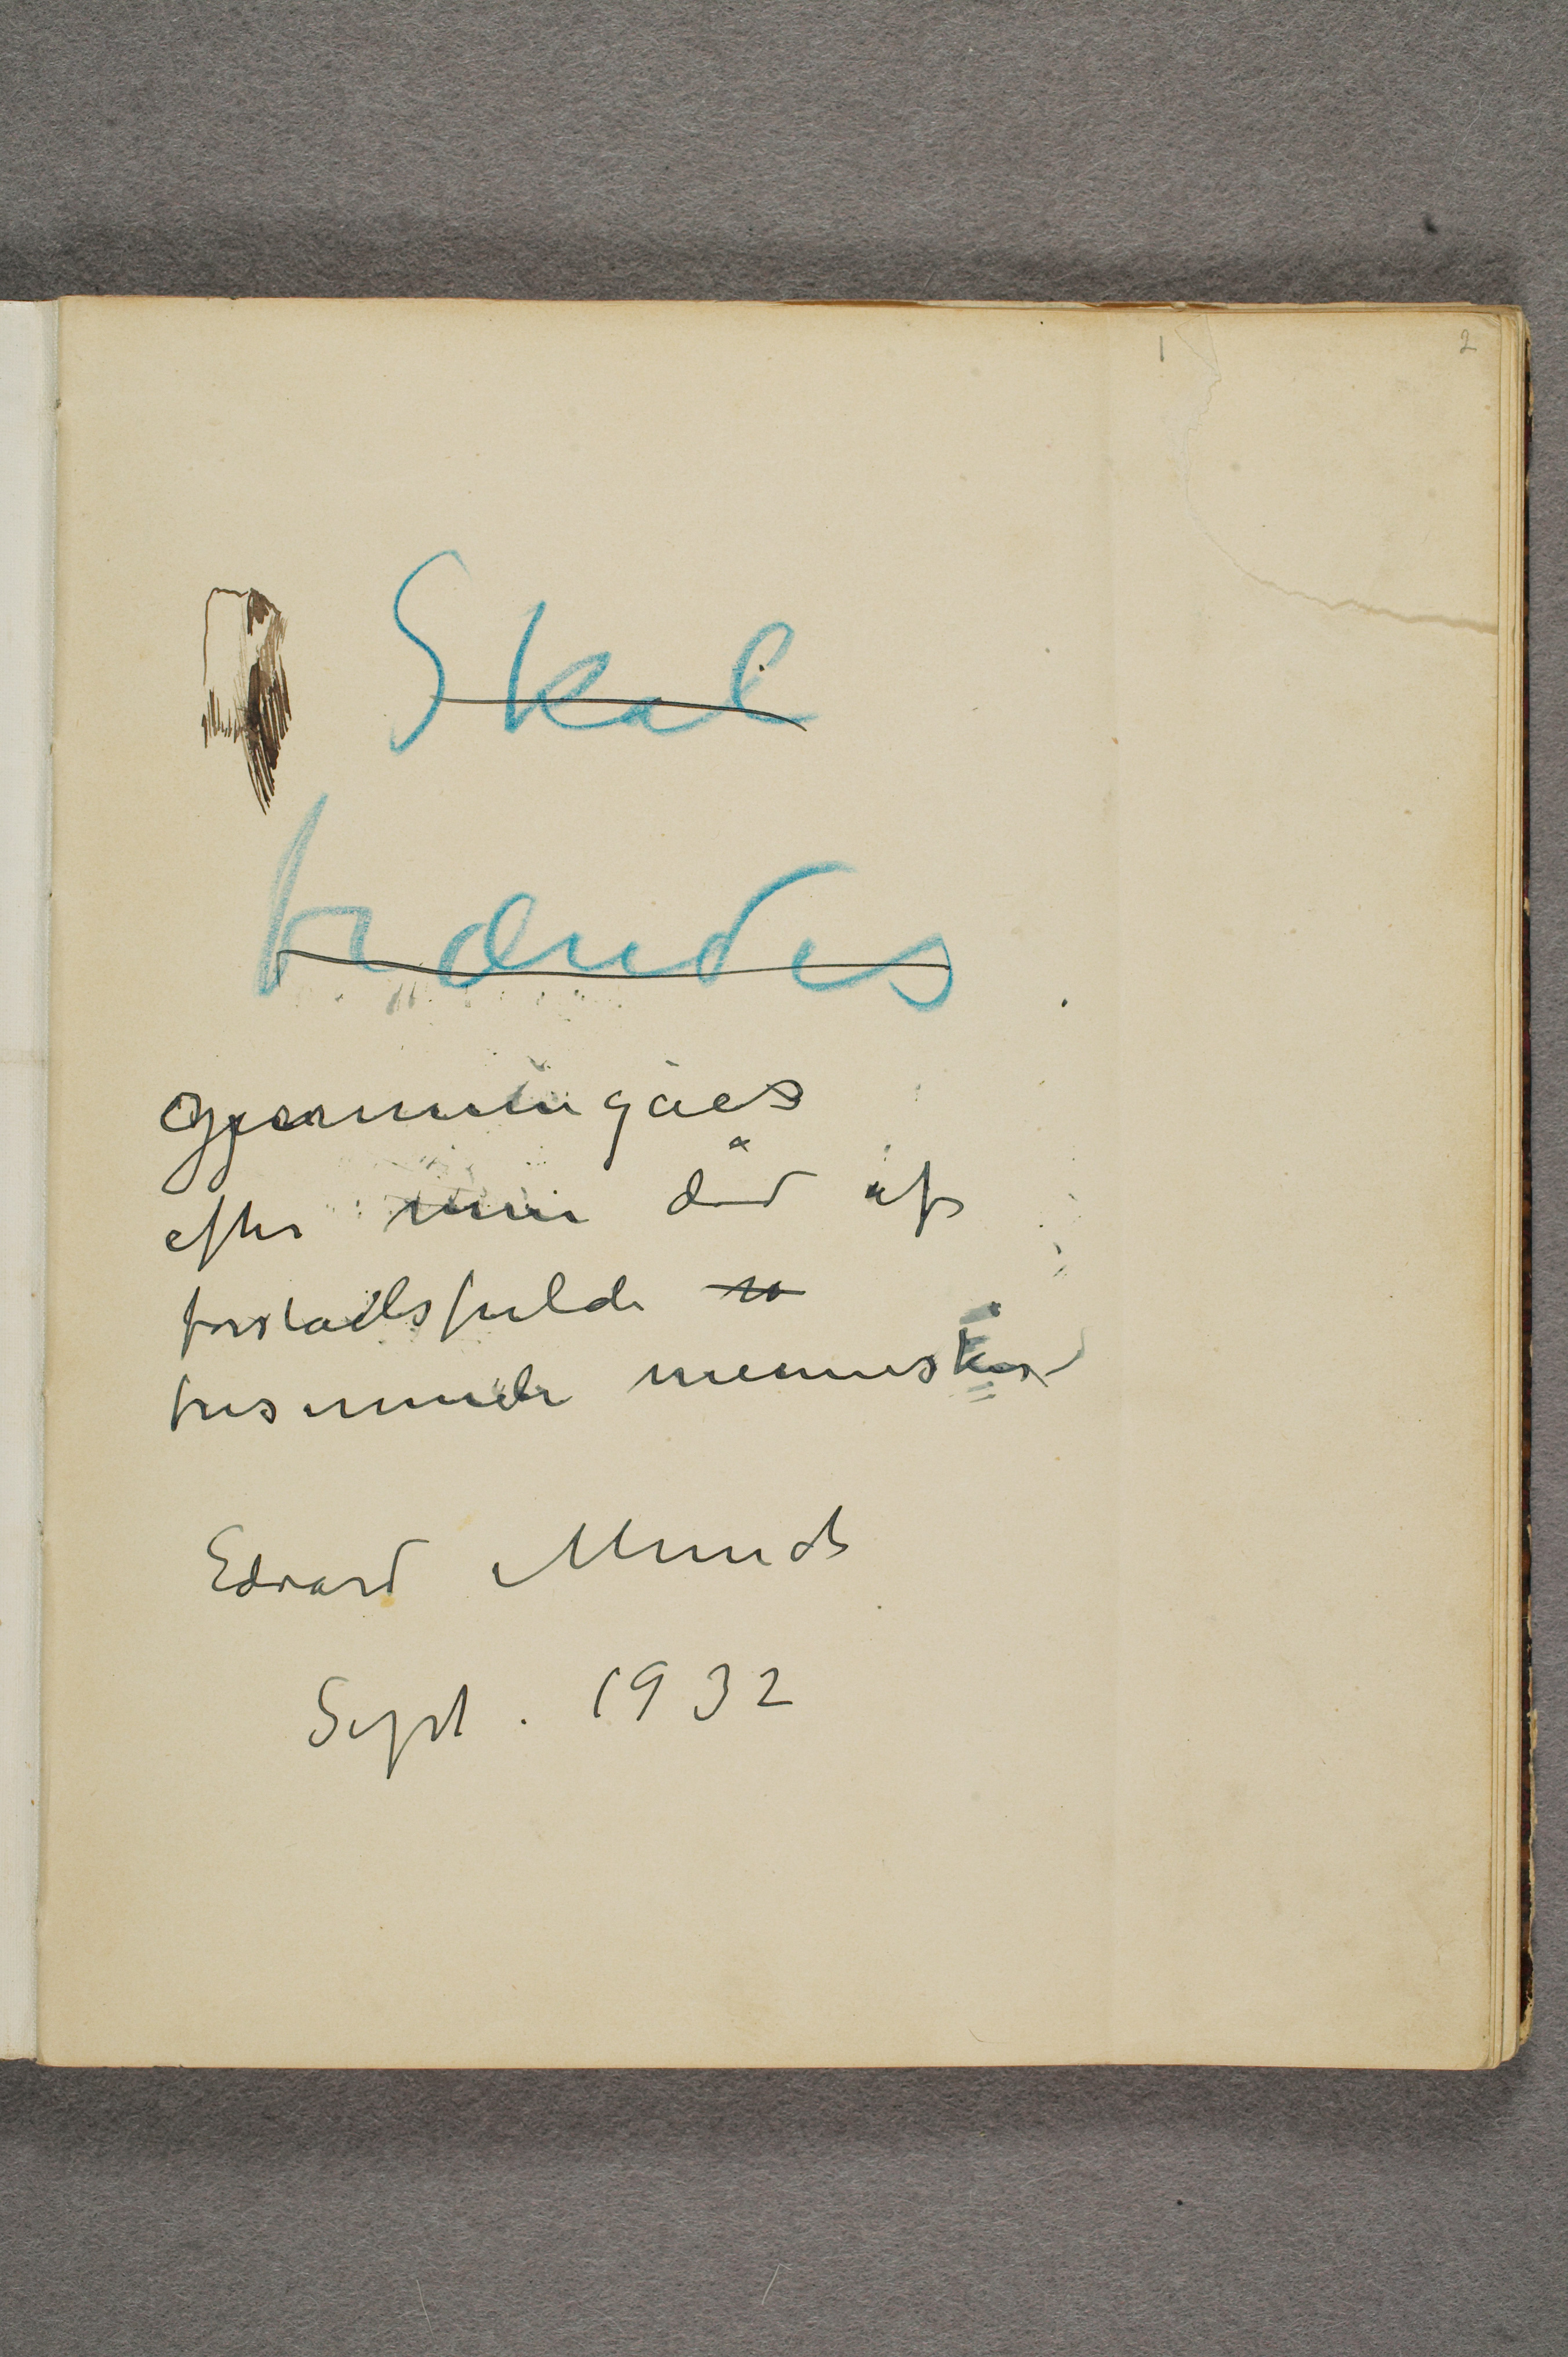 1 2
Skal
brændes
gjennemgåes
efter min død af
forståelsfulde
frisinnede mennesker
Edvard Munch
Sept. 1932